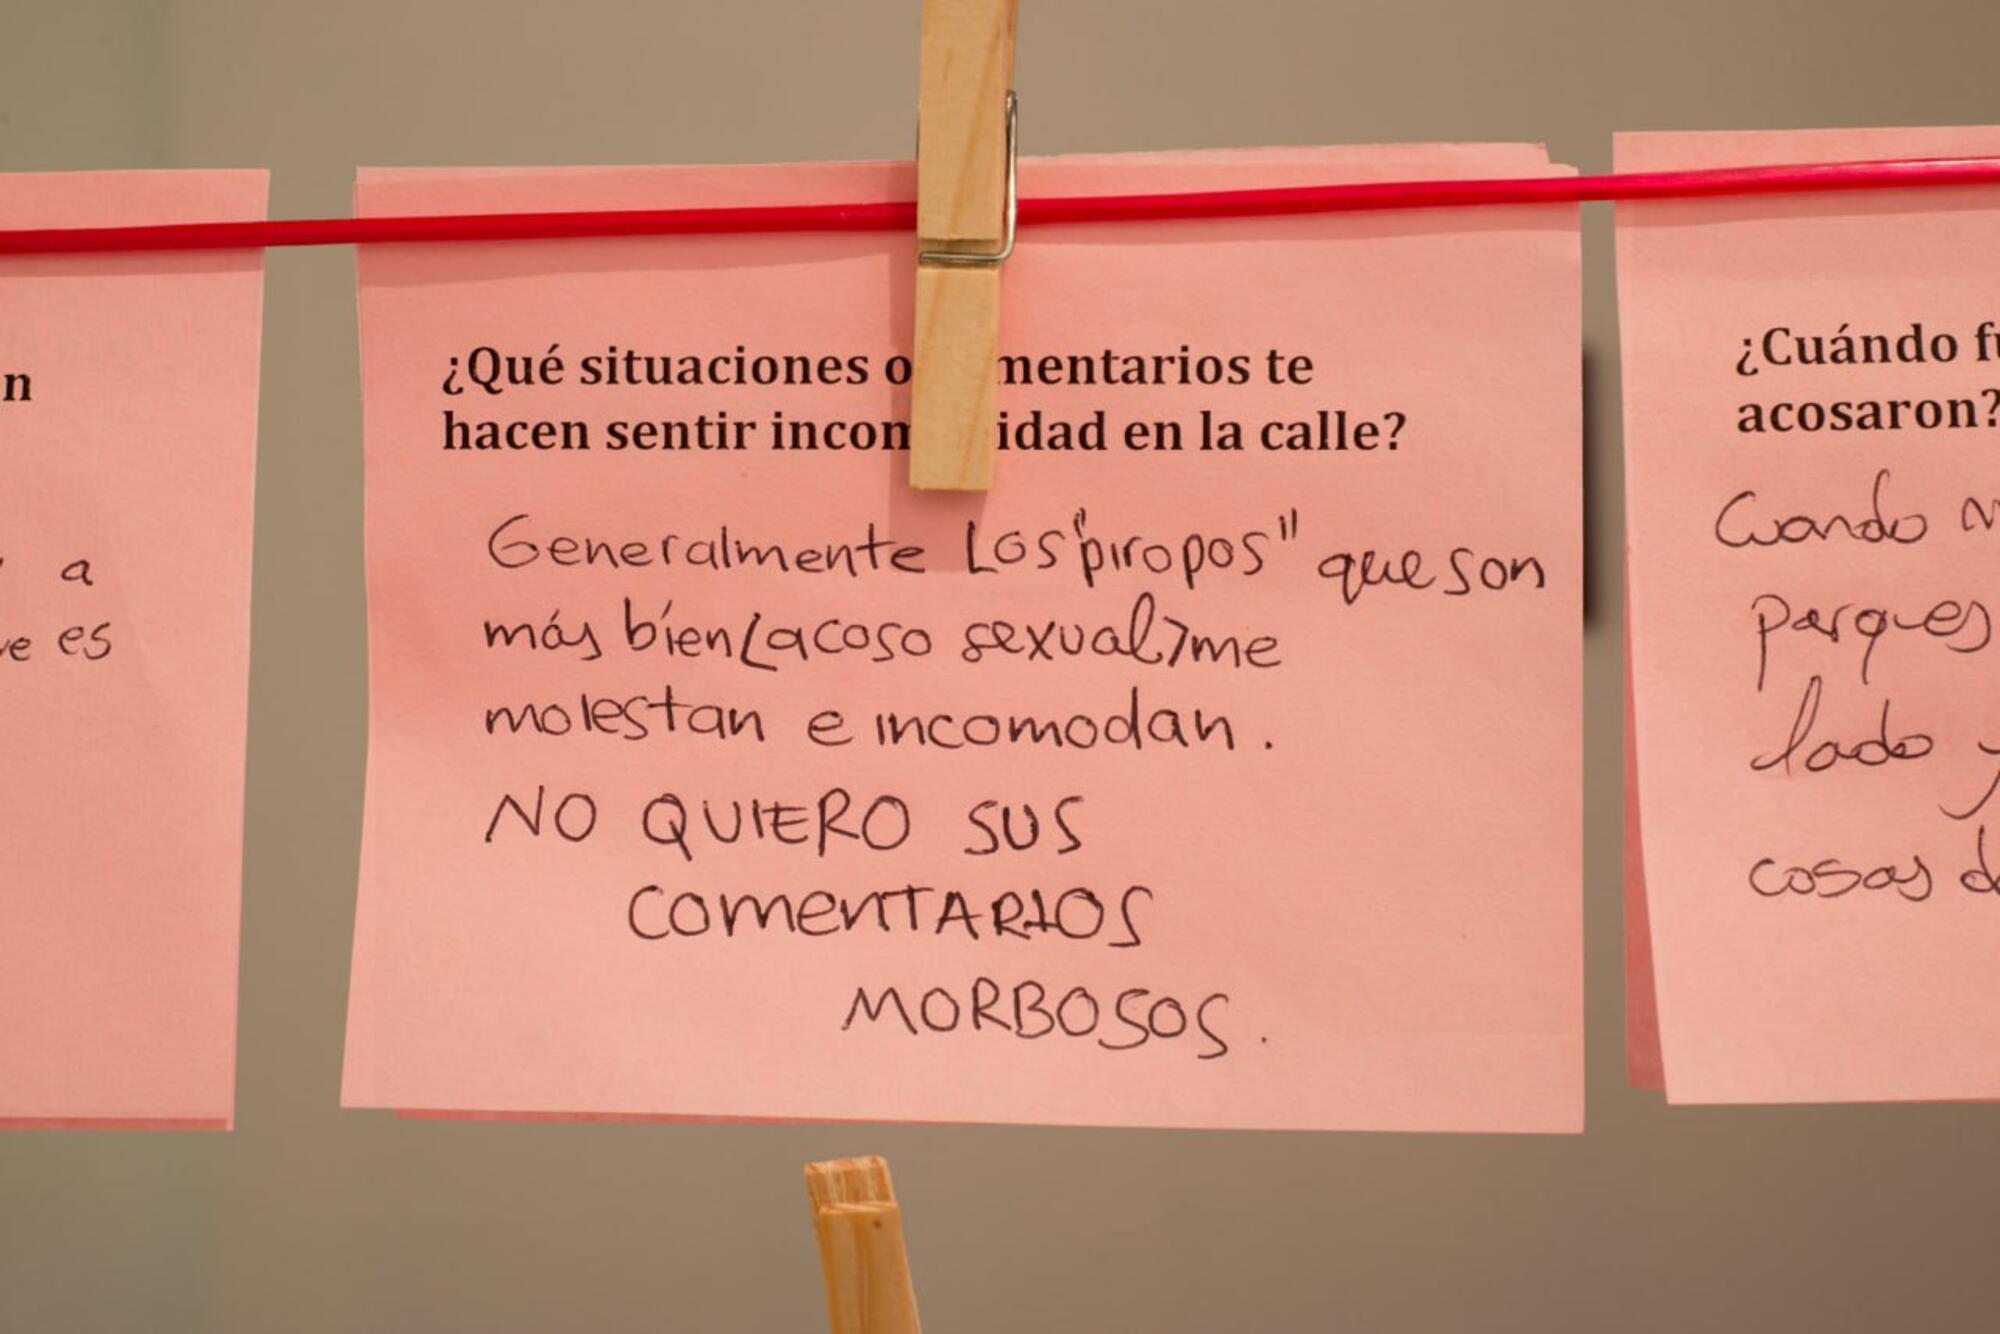 n
a
es
¿Qué situaciones o mentarios te
hacen sentir incom idad en la calle?
Generalmente Los "piropos" que son
más bien <acoso sexual> me
molestan e incomodan.
NO QUIERO SUS
COMENTARIOS
MORBOSOS.
¿Cuándo
acosaron?
Cuando
parques
lado y
cosas